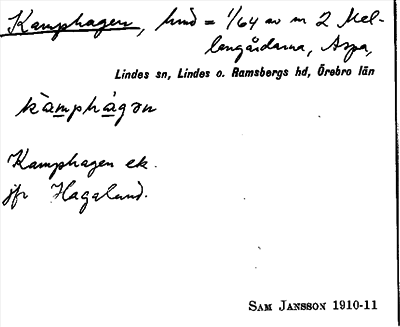 Kamphagen, hmd = 1/64 av m 2 Mel-
lengårdarna, Aspa,
Lindes sn, Lindes o. Ramsbergs hd, Örebro län
kàmphágən
Kamphagen ek.
jfr Hagalund.
SAM JANSSON 1910-11